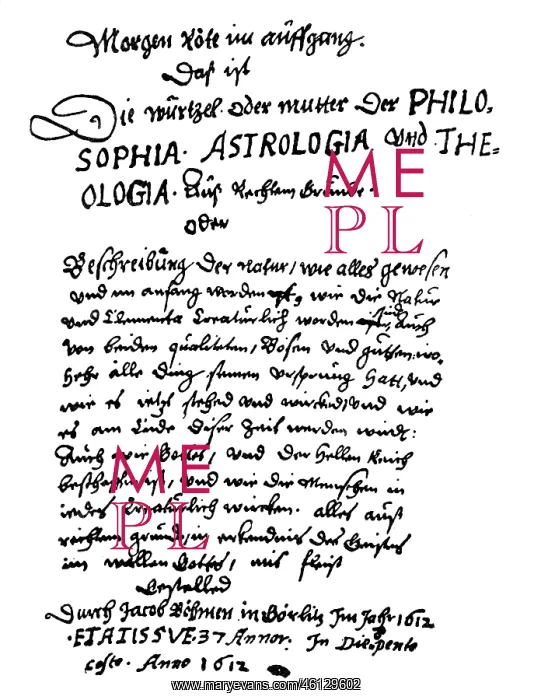 Morgen Röte im aüffgang.
Das ist
Die würtzel oder mutter Der PHILO=
SOPHIA. ASTROLOGIA und THE=
OLOGIA. Auß Rechtem Grunde.
oder
Beschreibüng Der Natur, wie alles gewesen
und im anfang worden ist, wie die Natur
und Elementa Creatürlich worden sind, Auch
von beiden qualiteten, Bösen und gütten, wo,
hehr alle Ding seinen ursprüng hatt, und
wie es itzt stehed und wircked, und wie
es am Ende dieser Zeit werden wird:
Auch wie Gottes, und der Hellen Reich
beschaffen ist, und wie die Menschen in
iedes Creatürlich wircken. alles auß
rechtem grunde, in erkendnis des Geistes
im wallen Gottes, mit fleiß
Gestelled
Durch Jacob Böhmen in Görlitz Im Jahr 1612
ETATIS SVE 37 Annor. In Die pente
coste. Anno 1612
ME
PL
ME
PL
www.maryevans.com/46129602